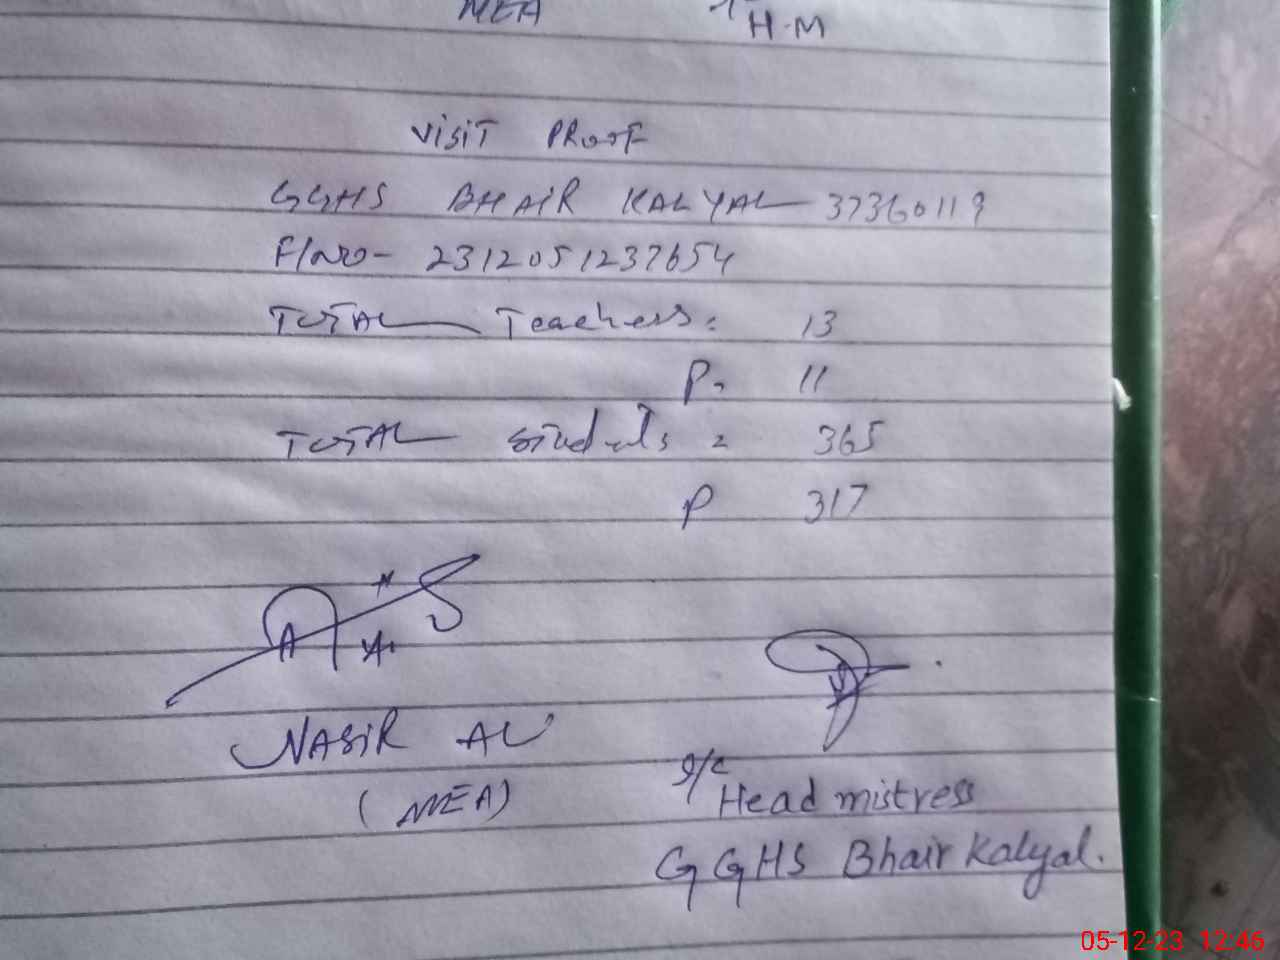 MEA H.M
VISIT PROOF
GGHS BHAIR KALYAL 37360119
F/No- 2312051237654
TOTAL Teachers: 13
P. 11
TOTAL Students = 365
P 317
NASIR ALI
(MEA)
I/C
Head mistress
GGHS Bhair Kalyal.
05-12-23 12:46